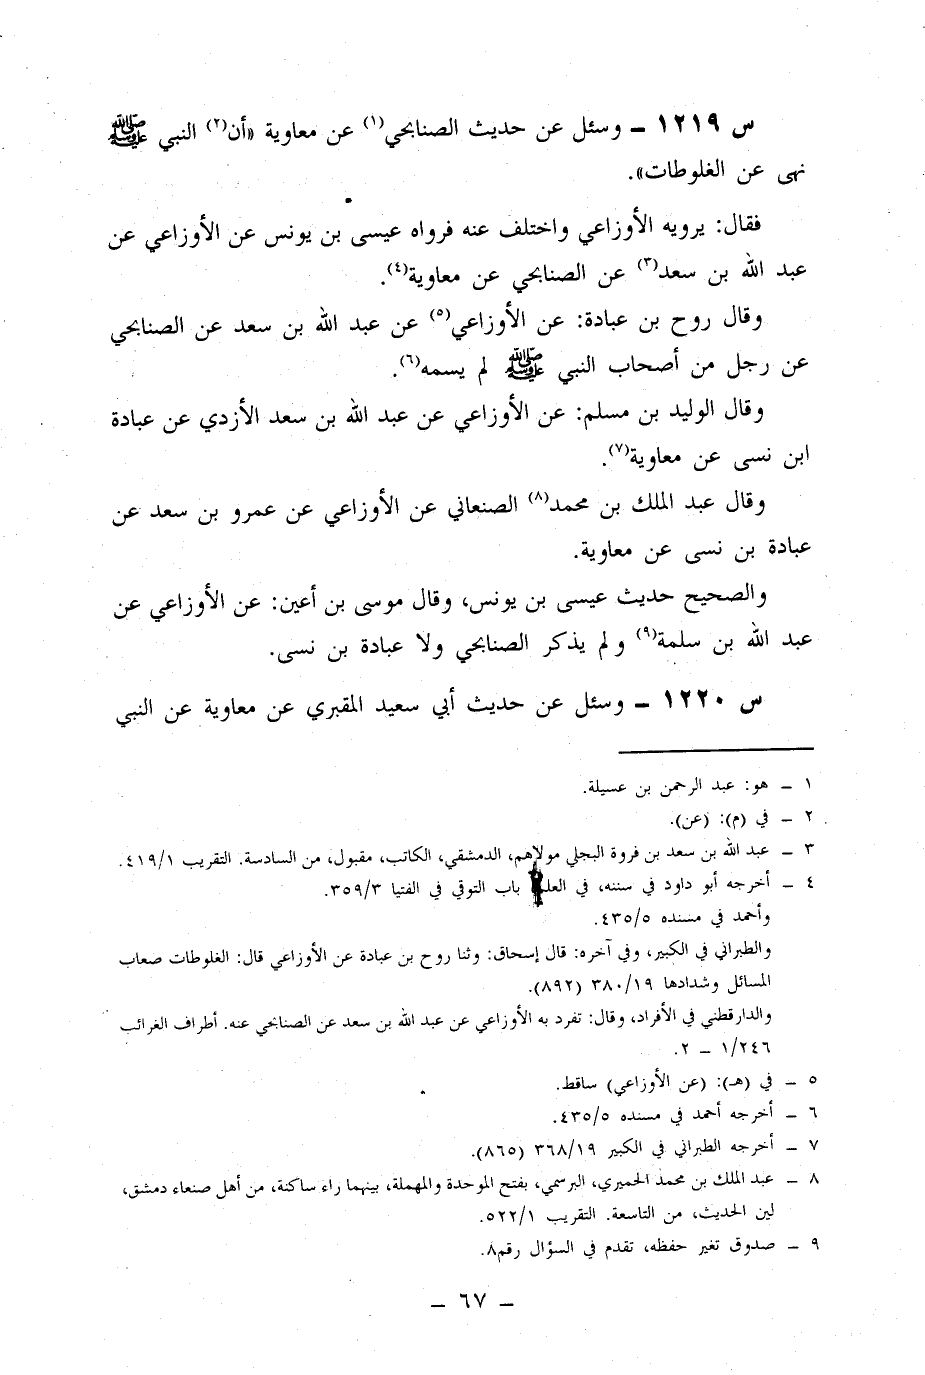 س ١٢١٩ ـ وسئل عن حديث الصنابحي(١) عن معاوية «أن(٢) النبي ﷺ
نهى عن الغلوطات».
فقال: يرويه الأوزاعي واختلف عنه فرواه عيسى بن يونس عن الأوزاعي عن
عبد الله بن سعد(٣) عن الصنابحي عن معاوية(٤).
وقال روح بن عبادة: عن الأوزاعي(٥) عن عبد الله بن سعد عن الصنابحي
عن رجل من أصحاب النبي ﷺ لم يسمه(٦).
وقال الوليد بن مسلم: عن الأوزاعي عن عبد الله بن سعد الأزدي عن عبادة
ابن نسى عن معاوية(٧).
وقال عبد الملك بن محمد(٨) الصنعاني عن الأوزاعي عن عمرو بن سعد عن
عبادة بن نسى عن معاوية.
والصحيح حديث عيسى بن يونس، وقال موسى بن أعين: عن الأوزاعي عن
عبد الله بن سلمة(٩) ولم يذكر الصنابحي ولا عبادة بن نسى.
س ١٢٢٠ ـ وسئل عن حديث أبي سعيد المقبري عن معاوية عن النبي
١ ـ هو: عبد الرحمن بن عسيلة.
٢ ـ في (م): (عن).
٣ ـ عبد الله بن سعد بن فروة البجلي مولاهم، الدمشقي، الكاتب، مقبول، من السادسة. التقريب ٤١٩/١.
٤ ـ أخرجه أبو داود في سننه، في العلم باب التوقي في الفتيا ٣٥٩/٣.
وأحمد في مسنده ٤٣٥/٥.
والطبراني في الكبير، وفي آخره: قال إسحاق: وثنا روح بن عبادة عن الأوزاعي قال: الغلوطات صعاب
المسائل وشدادها ٣٨٠/١٩ (٨٩٢).
والدارقطني في الأفراد، وقال: تفرد به الأوزاعي عن عبد الله بن سعد عن الصنابحي عنه. أطراف الغرائب
١/٢٤٦ ـ ٢.
٥ ـ في (هـ): (عن الأوزاعي) ساقط.
٦ ـ أخرجه أحمد في مسنده ٤٣٥/٥.
٧ ـ أخرجه الطبراني في الكبير ٣٦٨/١٩ (٨٦٥).
٨ ـ عبد الملك بن محمد الحميري، البرسمي، بفتح الموحدة والمهملة، بينهما راء ساكنة، من أهل صنعاء دمشق،
لين الحديث، من التاسعة. التقريب ٥٢٢/١.
٩ ـ صدوق تغير حفظه، تقدم في السؤال رقم٨.
ـ ٦٧ ـ